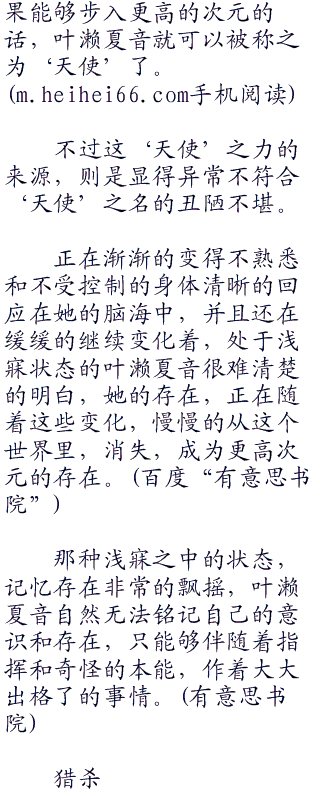 果能够步入更高的次元的
话，叶濑夏音就可以被称之
为‘天使’了。
(m.heihei66.com手机阅读)
不过这‘天使’之力的
来源，则是显得异常不符合
‘天使’之名的丑陋不堪。
正在渐渐的变得不熟悉
和不受控制的身体清晰的回
应在她的脑海中，并且还在
缓缓的继续变化着，处于浅
寐状态的叶濑夏音很难清楚
的明白，她的存在，正在随
着这些变化，慢慢的从这个
世界里，消失，成为更高次
元的存在。(百度“有意思书
院”)
那种浅寐之中的状态，
记忆存在非常的飘摇，叶濑
夏音自然无法铭记自己的意
识和存在，只能够伴随着指
挥和奇怪的本能，作着大大
出格了的事情。(有意思书
院)
猎杀